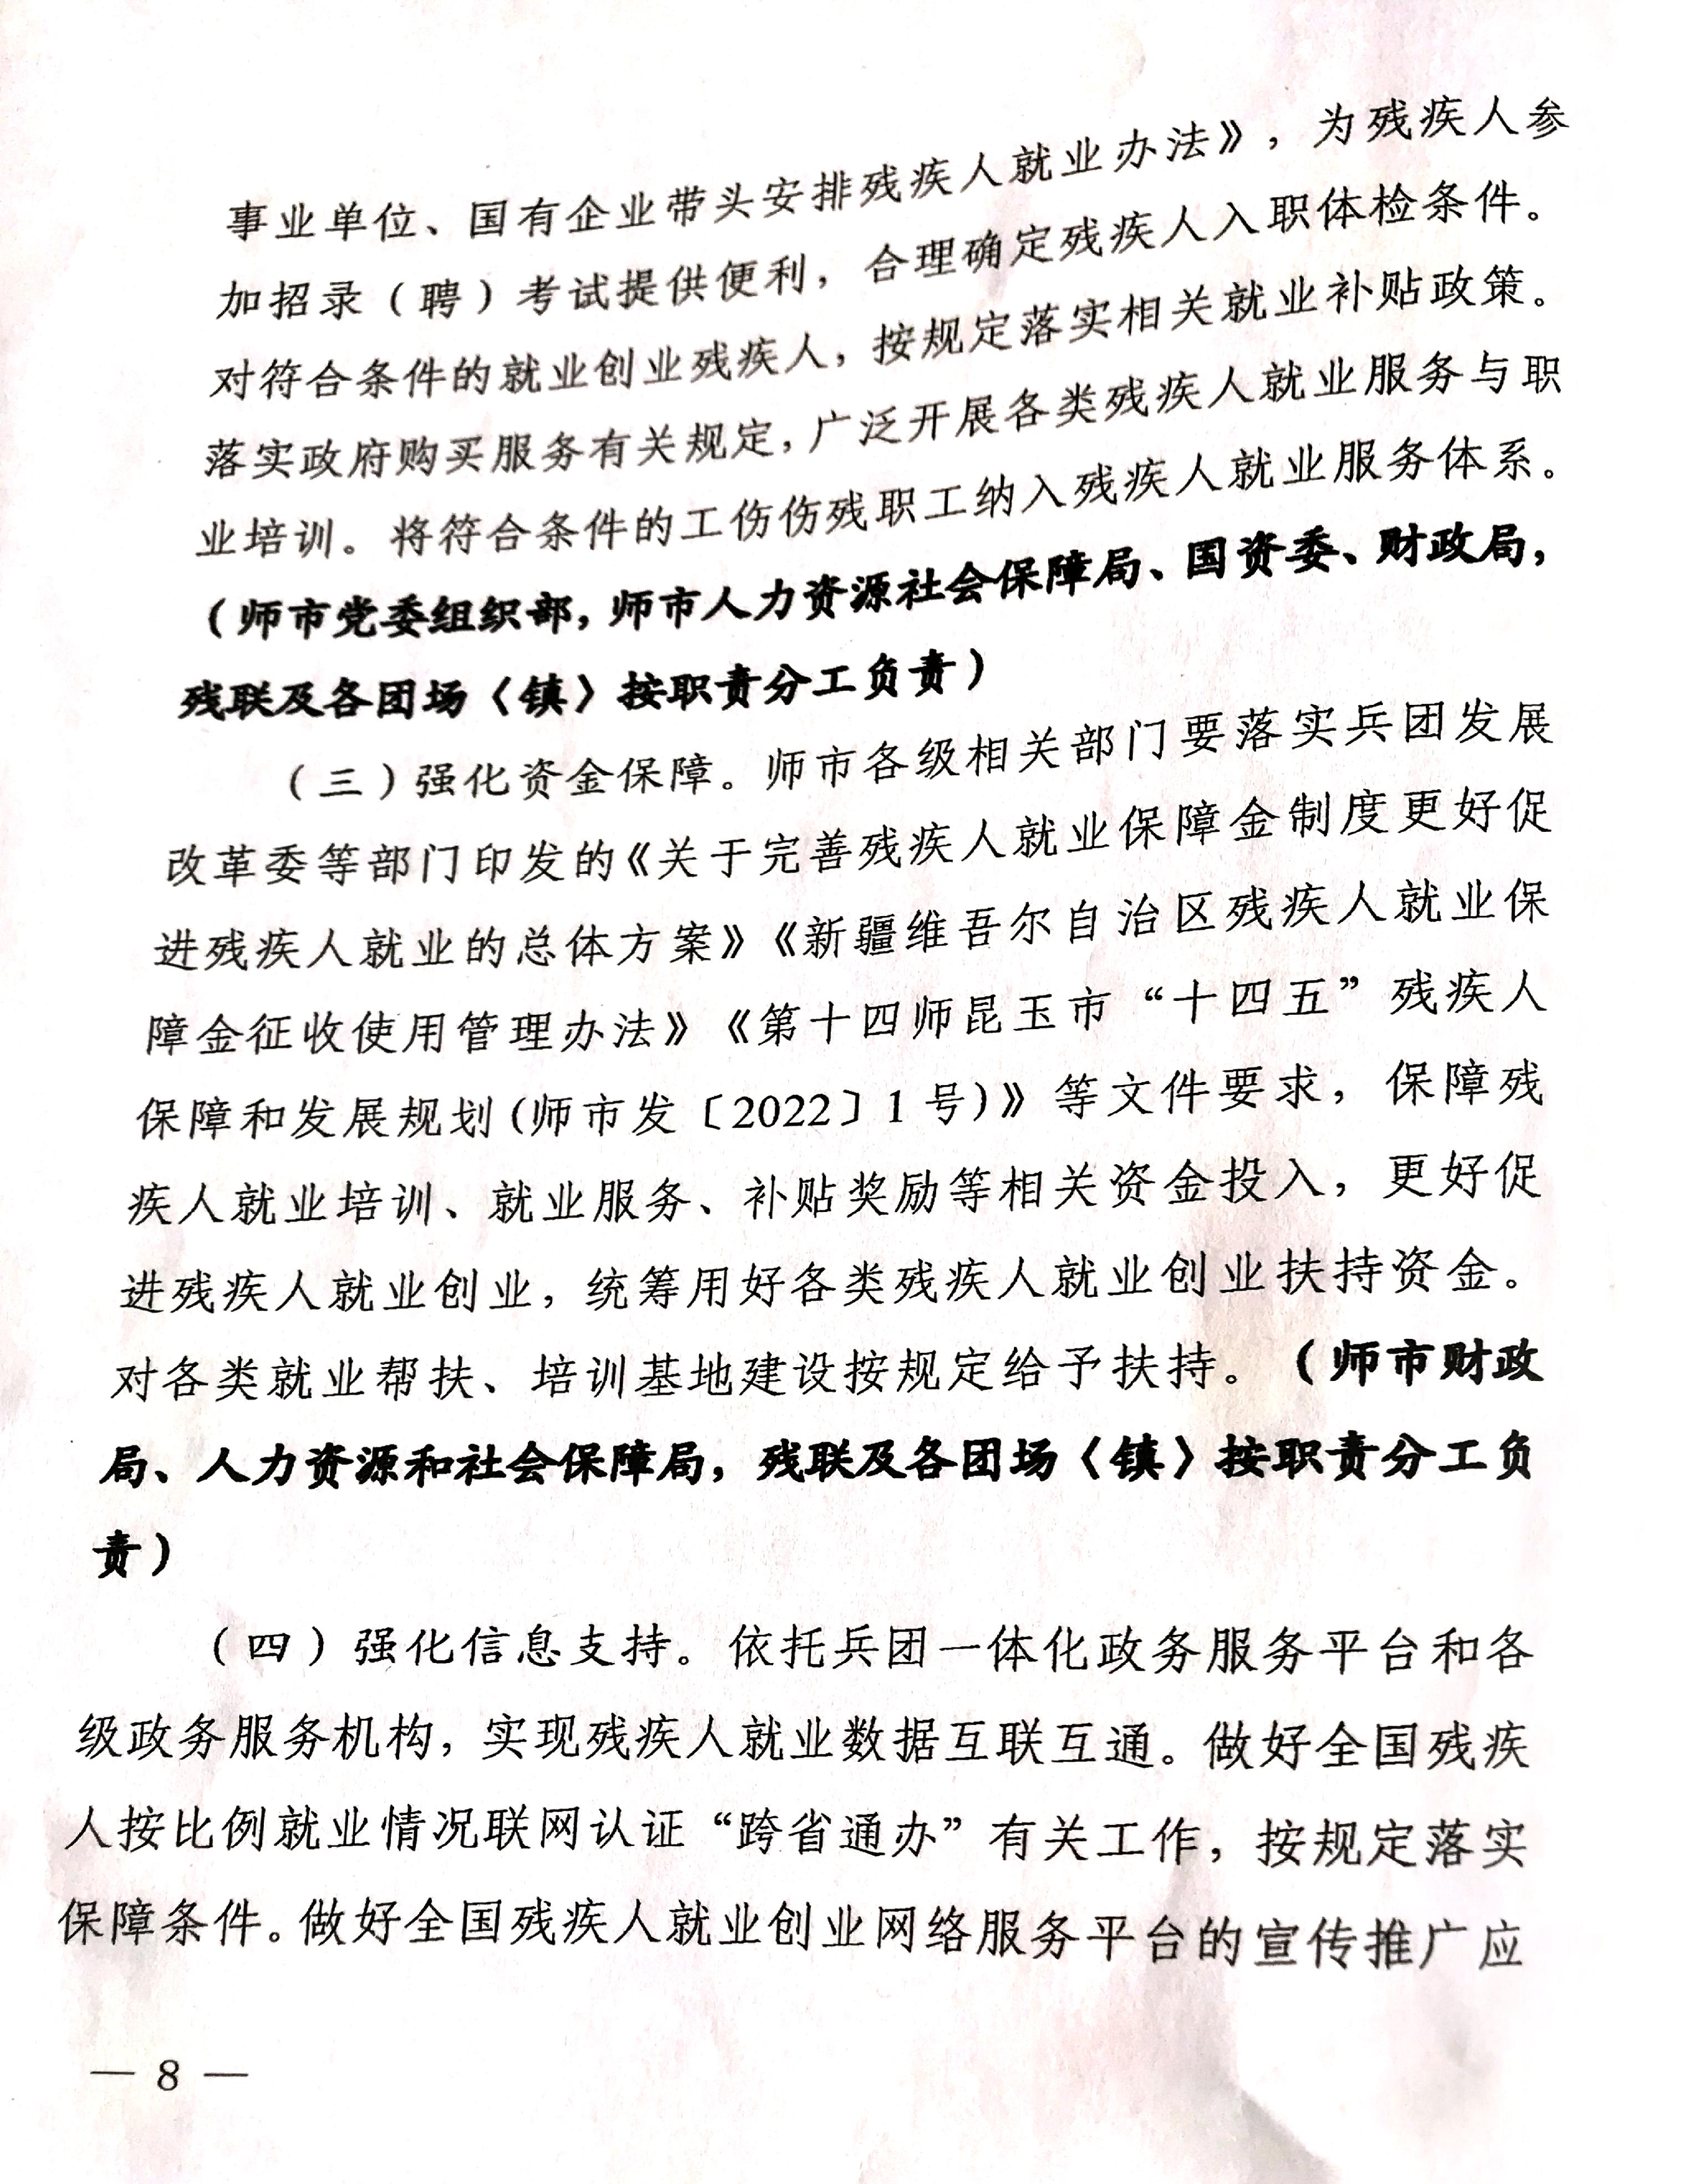 事业单位、国有企业带头安排残疾人就业办法》，为残疾人参
加招录（聘）考试提供便利，合理确定残疾人入职体检条件。
对符合条件的就业创业残疾人，按规定落实相关就业补贴政策。
落实政府购买服务有关规定，广泛开展各类残疾人就业服务与职
业培训。将符合条件的工伤伤残职工纳入残疾人就业服务体系。
（师市党委组织部，师市人力资源社会保障局、国资委、财政局，
残联及各团场〈镇〉按职责分工负责）
（三）强化资金保障。师市各级相关部门要落实兵团发展
改革委等部门印发的《关于完善残疾人就业保障金制度更好促
进残疾人就业的总体方案》《新疆维吾尔自治区残疾人就业保
障金征收使用管理办法》《第十四师昆玉市“十四五”残疾人
保障和发展规划(师市发〔2022〕1号)》等文件要求，保障残
疾人就业培训、就业服务、补贴奖励等相关资金投入，更好促
进残疾人就业创业，统筹用好各类残疾人就业创业扶持资金。
对各类就业帮扶、培训基地建设按规定给予扶持。（师市财政
局、人力资源和社会保障局，残联及各团场〈镇〉按职责分工负
责）
（四）强化信息支持。依托兵团一体化政务服务平台和各
级政务服务机构，实现残疾人就业数据互联互通。做好全国残疾
人按比例就业情况联网认证“跨省通办”有关工作，按规定落实
保障条件。做好全国残疾人就业创业网络服务平台的宣传推广应
— 8 —